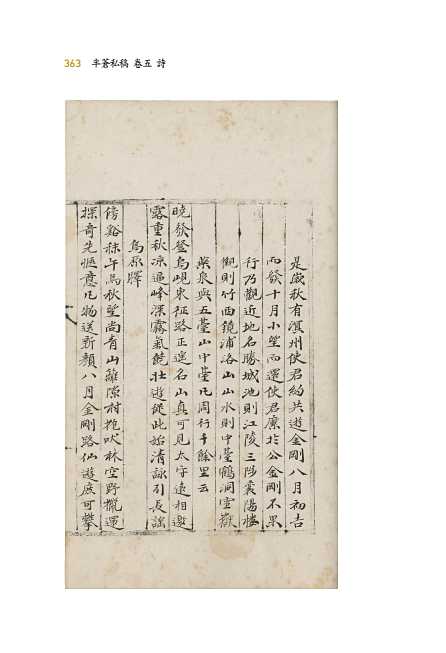 363 半蒼私稿 卷五 詩
是歲秋有溟州使君約共遊金剛八月初吉
而發十月小望而還使君縻於公金剛不果
行乃觀近地名勝城池則江陵三陟襄陽樓
觀則竹西鏡浦洛山山水則中臺鶴洞雪嶽
紫泉與五臺山中臺凡周行千餘里云
曉發登烏峴東征路正遙名山真可見太守遠相邀
露重秋凉逼峰深霧氣饒壯遊從此始淸詠引長謠
烏原驛
傍谿秣午馬秋望尚青山籬隙村挹吠林空野獵還
探奇先愜意凡物送新顏八月金剛路仙遊庶可攀